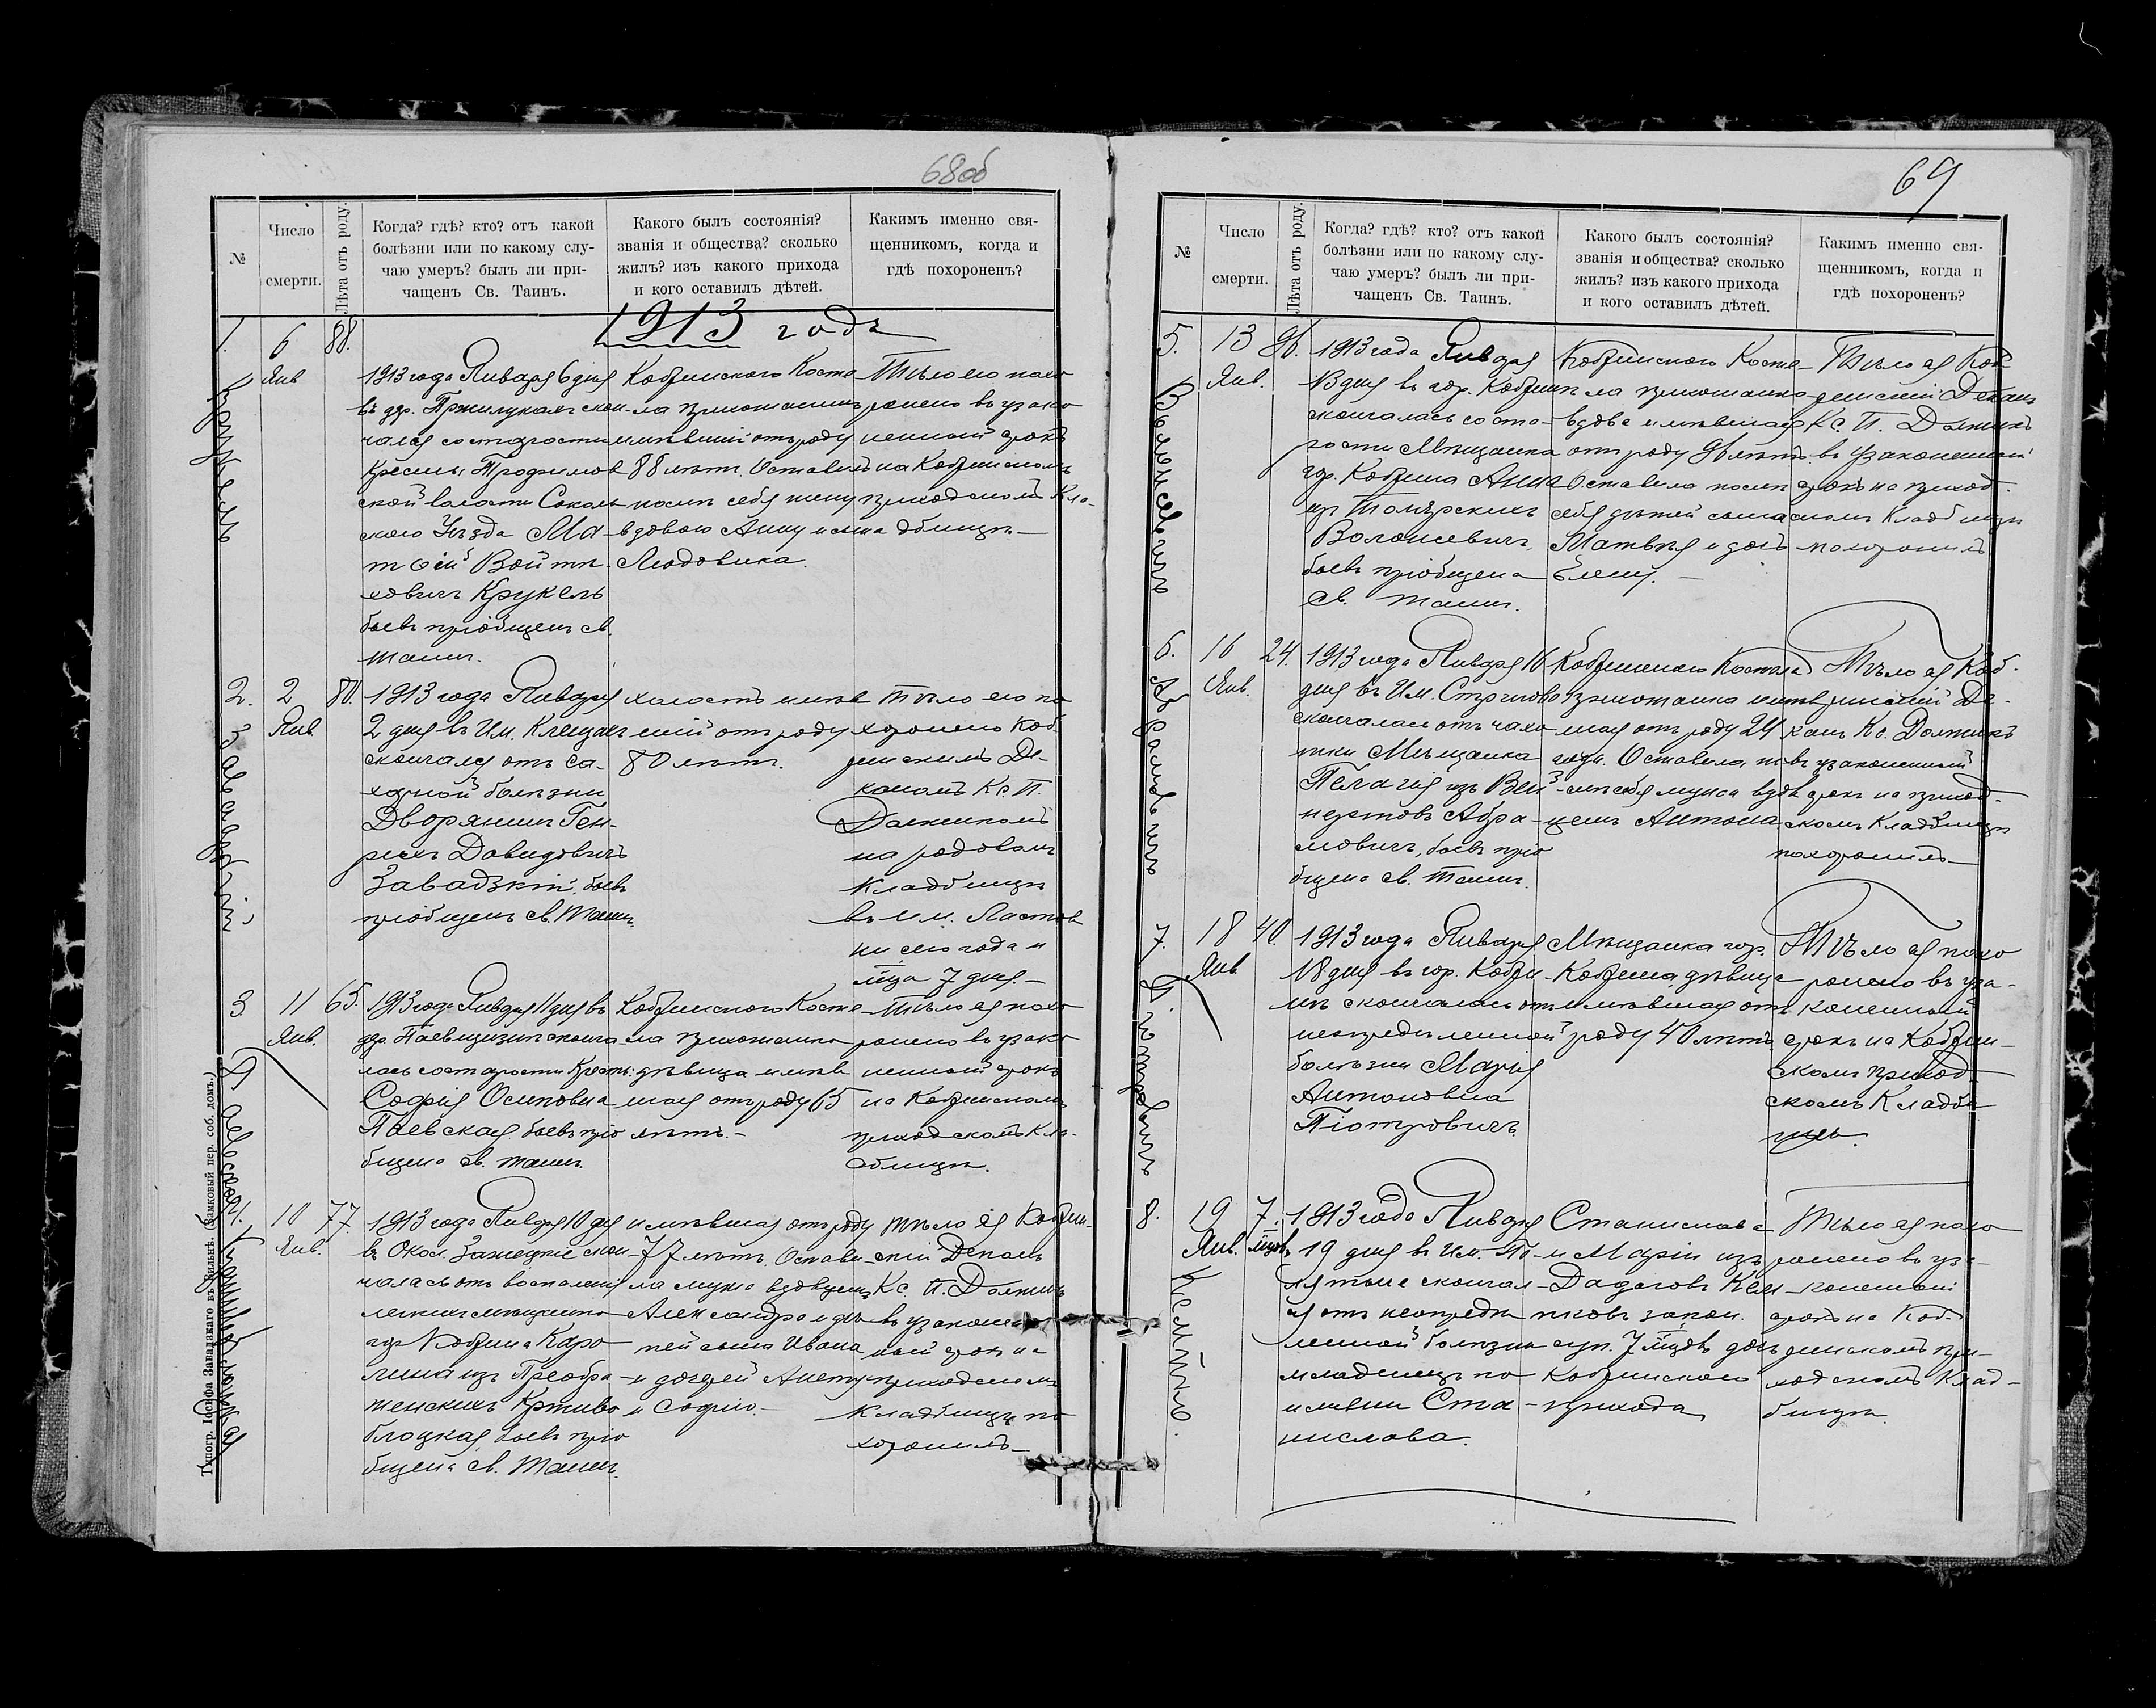 68об
№
Число
смерти.
Лѣта отъ роду.
Когда? гдѣ? кто? отъ какой
болѣзни или по какому слу-
чаю умеръ? былъ ли при-
чащенъ Св. Таинъ.
Какого былъ состоянія?
званія и общества? сколько
жилъ? изъ какого прихода
и кого оставилъ дѣтей.
Какимъ именно свя-
щенникомъ, когда и
гдѣ похороненъ?
1913 годъ
1.
Крукель
6
Янв
88.
1913 года Января 6 дня
въ дер. Пржилукахъ скон-
чался со старости
кресть: Трофимов
ской волости Соколь
скаго Уѣзда Ма-
тѳій Войтѣ-
ховичъ Крукель
бывъ пріобщенъ св.
таинъ.
Кобринского Косте
ла прихожанинъ
имѣвшій отъ роду
88 лѣтъ. Оставилъ
послѣ себя жену
вдовою Анну и сына
Людовика.
Тѣло его похо
ронено въ узако
ненный срокъ
на Кобринскомъ
приходскомъ Кла-
дбищѣ.
2.
Завадзкій
2
Янв
80.
1913 года Января
2 дня въ Им. Клещахъ
скончался отъ са-
харной болѣзни
Дворянинъ Ген-
рихъ Давидовичъ
Завадзкій, бывъ
пріобщенъ св. Таинъ.
холостъ имѣв
шій отъ роду
80 лѣтъ.
Тѣло его по
хоронено Коб
ринскимъ Де-
каномъ Кс. П.
Должикомъ
на родовомъ
кладбищѣ
въ Им. Ластов
ки сего года и
мца 7 дня.
3
Паевская
11
Янв.
65.
1913 года Января 11 дня въ
дер. Паевщизнѣ сконча
лась со старости Кресть:
Софія Осиповна
Паевская. бывъ прiо
бщена св. таинъ.
Кобринского Косте
ла прихожанка
дѣвица имѣв
шая отъ роду 65
лѣтъ.
Тѣло ея похо
ронено въ узако
ненный срокъ
на Кобринскомъ
приходскомъ Кла-
дбищѣ.
4.
10
Янв.
77.
1913 года Января 10 дня
въ Окол. Залѣцкіе скон
чалась отъ воспаленія
легкихъ мѣщанка
гор. Кобрина Каро
лина изъ Преобра-
женскихъ Криво
блоцкая, бывъ прiо
бщена св. Таинъ.
имѣвшая отъ роду
77 лѣтъ. Остави
ла мужа вдовцемъ
Александра и дѣ
тей сына Ивана
и дочерей Анету
и Софію.
Тѣло ея Кобрин-
скій Деканъ
Кс. П. Должикъ
въ узаконен
ный срокъ на
приходскомъ
Кладбищѣ по
хоронилъ
Типогр. Іосифа Завадзкаго въ Вильнѣ. (Замковый пер. соб. домъ.)
69
№
Число
смерти.
Лѣта отъ роду.
Когда? гдѣ? кто? отъ какой
болѣзни или по какому слу-
чаю умеръ? былъ ли при-
чащенъ Св. Таинъ.
Какого былъ состоянія?
званія и общества? сколько
жилъ? изъ какого прихода
и кого оставилъ дѣтей.
Какимъ именно свя-
щенникомъ, когда и
гдѣ похороненъ?
5.
Волонсевичъ
13
Янв.
96.
1913 года Января
13 дня въ гор. Кобринѣ
скончалась со ста-
рости Мѣщанка
гор. Кобрина Анна
изъ
Волонсевичъ,
бывъ пріобщена
св. таинъ.
Кобринского Косте-
ла прихожанка
вдова имѣвшая
отъ роду 96 лѣтъ.
Оставила послѣ
себя дѣтей сына
Матвѣя и дочь
Елену.
Тѣло ея Коб
ринскій Деканъ
Кс. П. Должикъ
въ узаконенный
срокъ на приход-
скомъ Кладбищѣ
похоронилъ
6.
Абрамовичъ
16
Янв.
24.
1913 года Января 16
дня въ Им. Стригово
скончалась отъ чахо
тки Мѣщанка
Пелагія изъ Вен-
цертовъ Абра-
мовичъ, бывъ прiо
бщена св. таинъ.
Кобринского Костела
прихожанка имѣв
шая отъ роду 24
года. Оставила по-
слѣ себя мужа вдов
цемъ Антона
Тѣло ея Коб-
ринскій Де-
канъ Кс. Должикъ
въ узаконенный
срокъ на приход-
скомъ Кладбищѣ
похоронилъ
7.
Піотровичъ
18
Янв
40.
1913 года Января
18 дня въ гор. Кобри-
нѣ скончалась отъ
неопредѣленной
болѣзни Марія
Антоновна
Піотровичъ.
Мѣщанка гор.
Кобрина, дѣвица
имѣвшая отъ
роду 40 лѣтъ
Тѣло ея похо
ронено въ уза-
коненный
срокъ на Кобрин-
скомъ приход-
скомъ Кладби
щѣ.
8.
19
Янв.
7.
мцовъ
1913 года Января
19 дня въ Им.
скончал-
ся отъ неопредѣ
ленной болѣзни
младенецъ по
имени Ста-
нислава.
Станислава
и Маріи изъ
Дадаговъ
закон.
суп. 7 мцовъ дочь
Кобринского
прихода
Тѣло ея похо
ронено въ уза-
коненный
срокъ на Коб-
ринскомъ при-
ходскомъ Клад-
бищѣ.